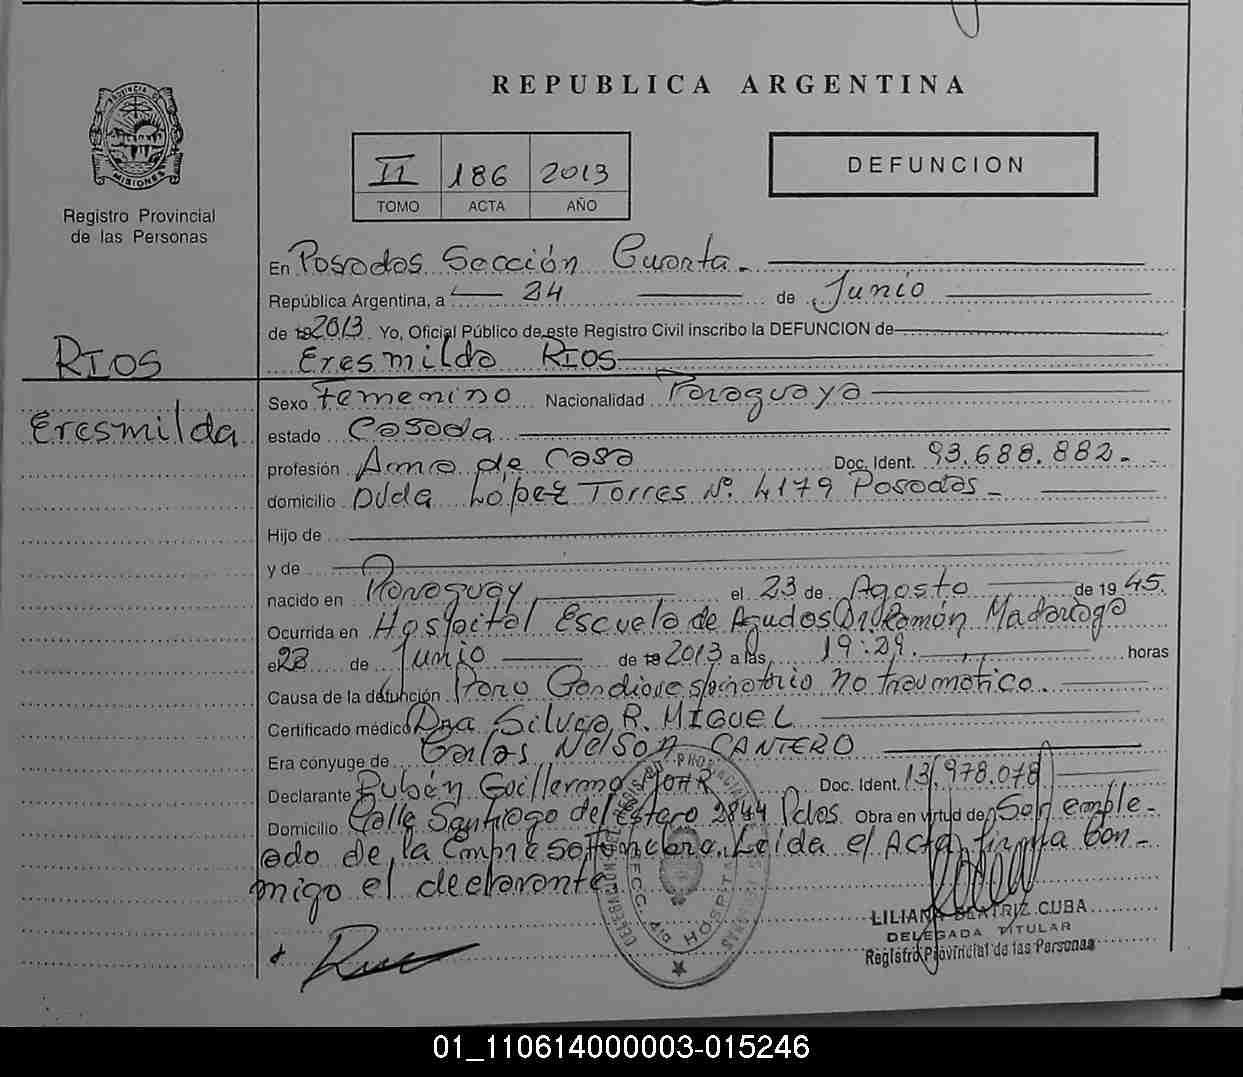 REPUBLICA ARGENTINA
PROVINCIA DE
MISIONES
Registro Provincial
de las Personas
II 186 2013
TOMO ACTA AÑO
DEFUNCION
En Posadas Sección Cuarta.
República Argentina, a 24 de Junio
de 19 2013 Yo, Oficial Público de este Registro Civil inscribo la DEFUNCION de
Eresmilda RIOS
RIOS
Eresmilda
Sexo Femenino Nacionalidad Paraguaya
estado Casada
profesión Ama de Casa Doc. Ident. 93.688.882.-
domicilio Avda López Torres Nº 4179 Posadas -
Hijo de
y de
nacido en Paraguay el 23 de Agosto de 19 45.
Ocurrida en Hospital Escuela de Agudos Dr. Ramón Madariaga
el 23 de Junio de 19 2013 a las 19:29. horas
Causa de la defunción Paro Cardiorespiratorio no traumatico.
Certificado médico Dra Silvia R. MIGUEL
Era cónyuge de Carlos Nelson CANTERO
Declarante Rubén Guillermo MOHR Doc. Ident. 13.978.078
Domicilio Calle Santiago del Estero 2844 Pdas. Obra en virtud de Ser emple-
ado de la Empresa Funebre. Leida el Acta firma Con-
migo el declarante
SECC. 4ta HOSPITAL
LILIANA BEATRIZ CUBA
DELEGADA TITULAR
Registro Provincial de las Personas
01_110614000003-015246